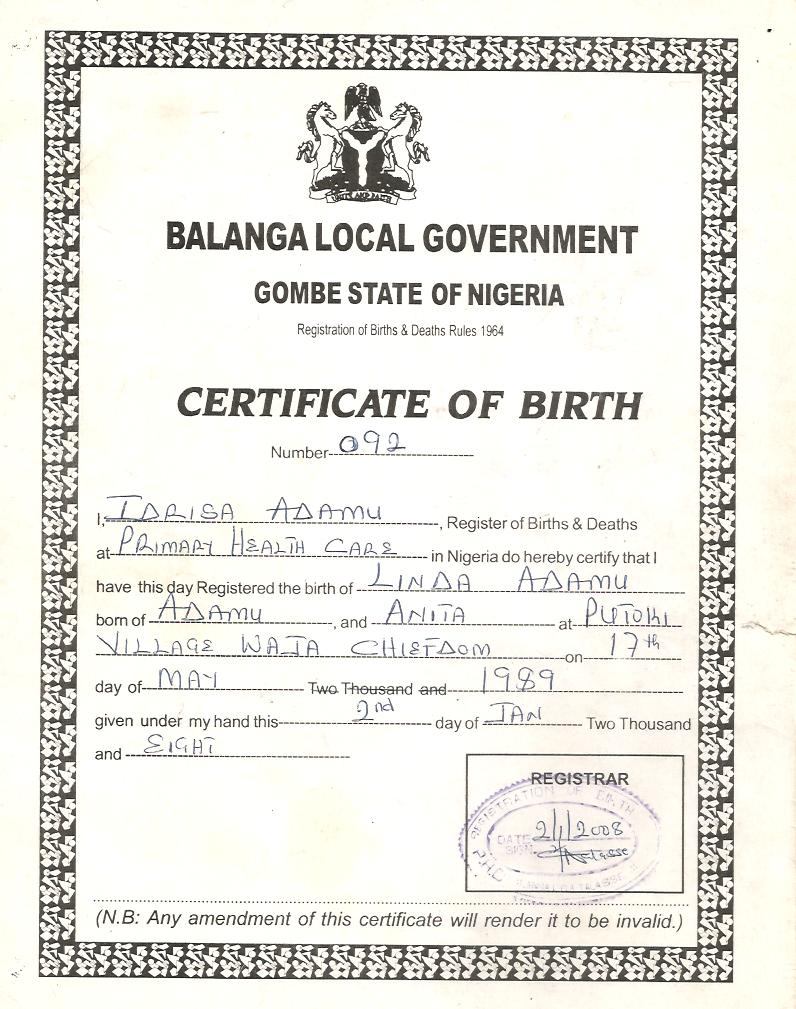 UNITY AND FAITH
BALANGA LOCAL GOVERNMENT
GOMBE STATE OF NIGERIA
Registration of Births & Deaths Rules 1964
CERTIFICATE OF BIRTH
Number 092
I, IDRISA ADAMU, Register of Births & Deaths
at PRIMARY HEALTH CARE in Nigeria do hereby certify that I
have this day Registered the birth of LINDA ADAMU
born of ADAMU, and ANITA at PUTOKI
VILLAGE WAJA CHIEFDOM on 17th
day of MAY Two Thousand and 1989
given under my hand this 2nd day of JAN Two Thousand
and EIGHT
REGISTRAR
REGISTRATION OF BIRTH
DATE 2/1/2008
SIGN
P.H.C
TALASSE
(N.B: Any amendment of this certificate will render it to be invalid.)